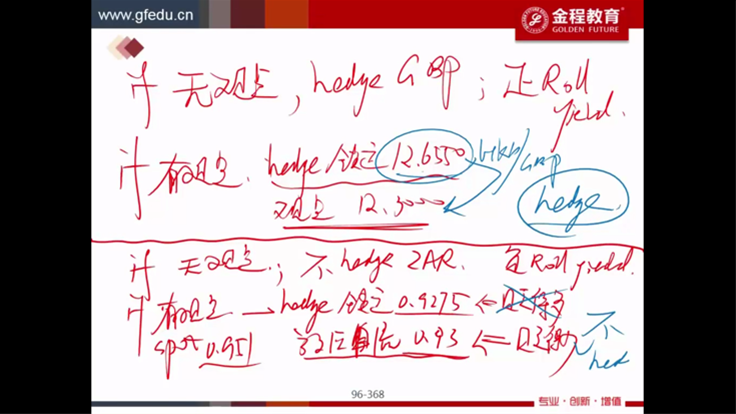 www.gfedu.cn
金程教育
GOLDEN FUTURE
if 无观点, hedge GBP; 正Roll yield.
if 有观点. hedge 锁定 12.6550 HKD/GBP
观点 12.3000 hedge
if 无观点; 不hedge ZAR. 负Roll yield.
if 有观点 → hedge 锁定 0.9275
spot 0.951 0.93 不
96-368
专业·创新·增值